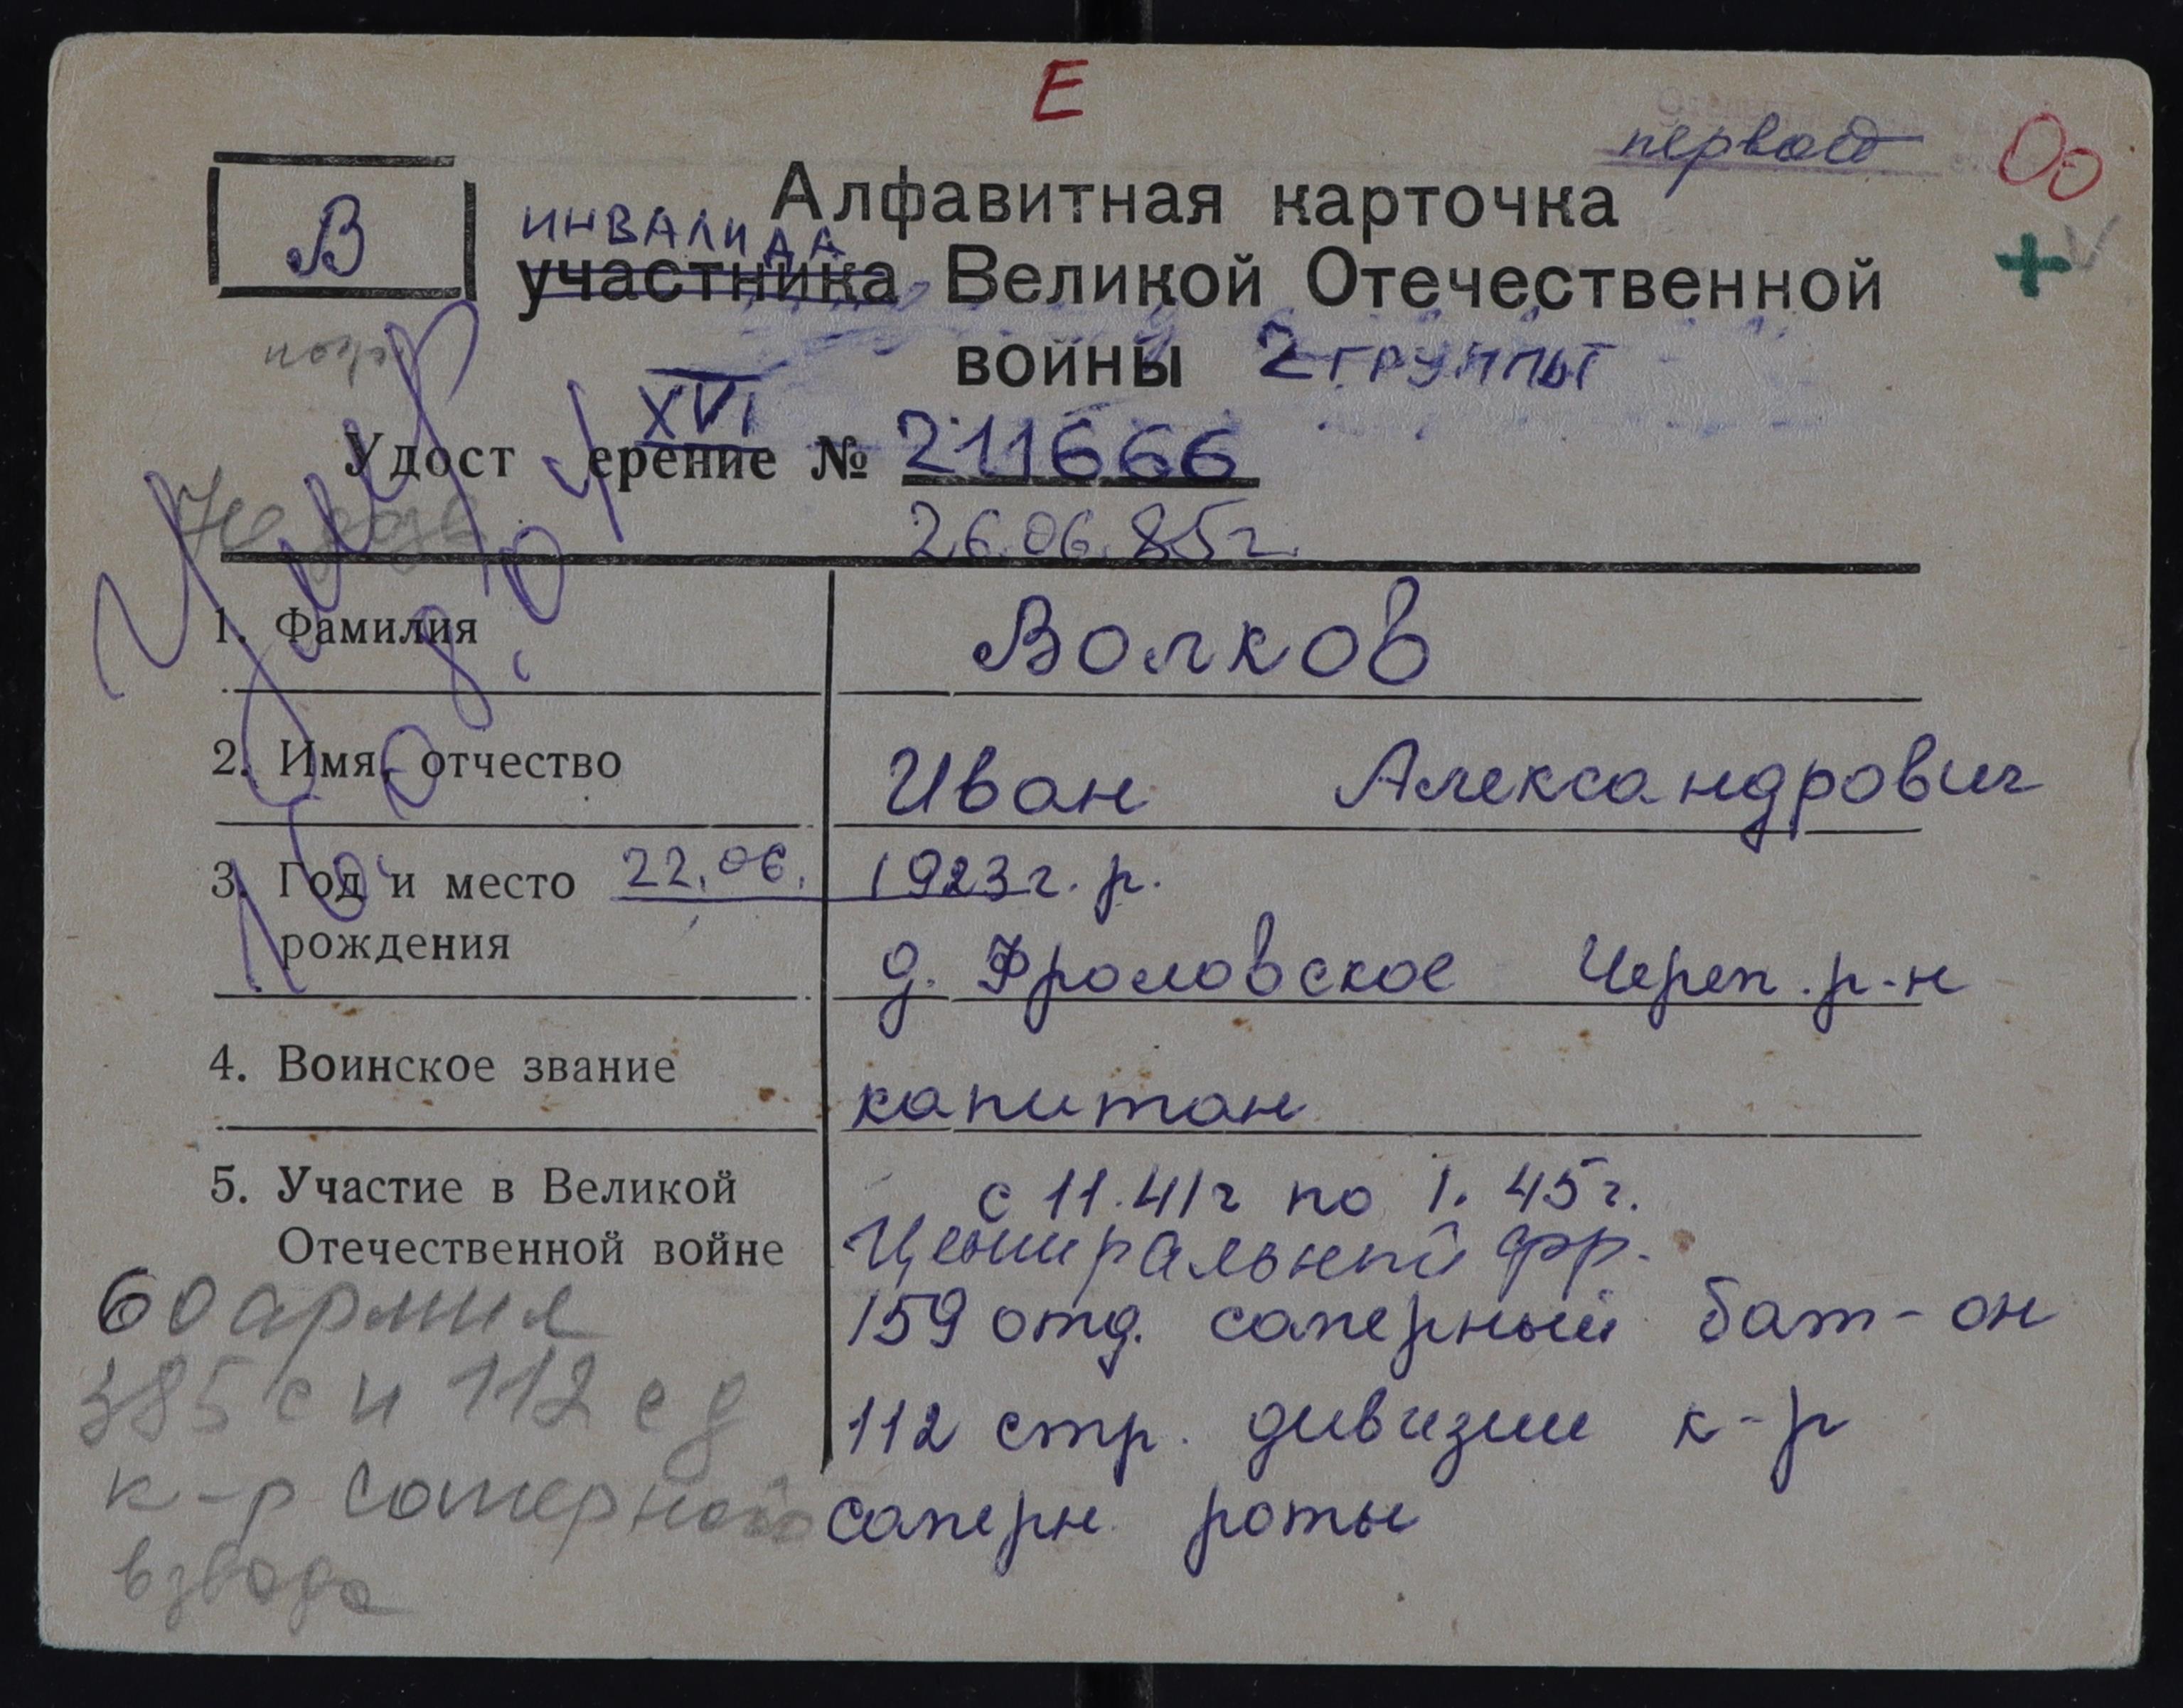 Е
первой
Оо
В
Алфавитная карточка
ИНВАЛИДА
участника Великой Отечественной
войны 2 ГРУППЫ
XVI
Удост ерение № 211666
26.06.85г.
Умер
1. Фамилия Волков
2. Имя, отчество Иван Александрович
3. Год и место 22.06. 1923г. р.
рождения д. Фроловское Череп. р-н
4. Воинское звание капитан
5. Участие в Великой с 11.41г по 1.45г.
Отечественной войне Центральный фр.
159 отд. саперный бат-он
112 стр. дивизии к-р
саперн. роты
60 армия
385 с п 112 с д
к-р саперного
взвода